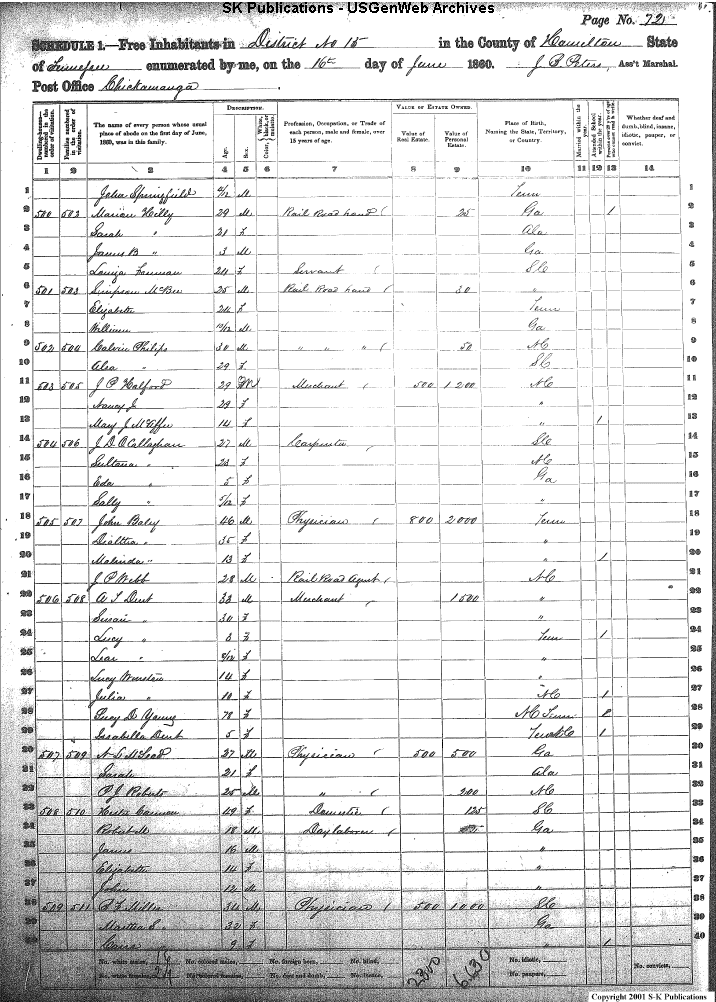 SK Publications - USGenWeb Archives
Page No. 72
SCHEDULE 1.—Free Inhabitants in District No 15 in the County of Hamilton State
of Tennessee enumerated by me, on the 16th day of June 1860. J. B. Peters, Ass't Marshal.
Post Office Chickamauga
Dwelling-houses—numbered in the order of visitation.
Families numbered in the order of visitation.
The name of every person whose usual place of abode on the first day of June, 1860, was in this family.
DESCRIPTION.
Age.
Sex.
Color, White, black, or mulatto.
Profession, Occupation, or Trade of each person, male and female, over 15 years of age.
VALUE OF ESTATE OWNED.
Value of Real Estate.
Value of Personal Estate.
Place of Birth, Naming the State, Territory, or Country.
Married within the year.
Attended School within the year.
Persons over 20 y'rs of age who cannot read & write.
Whether deaf and dumb, blind, insane, idiotic, pauper, or convict.
1 2 3 4 5 6 7 8 9 10 11 12 13 14
1 Julia Springfield M Tenn 1
2 500 502 Marian 29 M Rail Road hand 25 Ga 1 2
3 Sarah " 21 f Ala 3
4 James B " 3 M Ga 4
5 24 f Servant SC 5
6 501 503 Simpson McBee 25 M Rail Road hand 30 " 6
7 Elizabeth 24 f Tenn 7
8 William M Ga 8
9 502 504 Calvin Philips 30 M " " " 50 NC 9
10 " 29 f SC 10
11 503 505 J P Halford 29 M Merchant 500 1200 NC 11
12 Nancy J 29 f " 12
13 Mary J 14 f " 1 13
14 504 506 J. D. O Callaghan 27 M Carpenter SC 14
15 Sultana " 23 f NC 15
16 Eda " 5 f Ga 16
17 Sally " 5/12 f " 17
18 505 507 John Baly 46 M Physician 800 2000 Tenn 18
19 " 35 f " 19
20 Malinda " 13 f " 1 20
21 J P Webb 28 M Rail Road Agent NC 21
22 506 508 A L Dent 33 M Merchant 1500 " 22
23 Susan " 30 f " 23
24 Lucy " 8 f Tenn 1 24
25 " f " 25
26 Lucy 14 f " 26
27 Julia " 10 f NC 1 27
28 Lucy D Young 78 f NC Tenn 28
29 Isabella Dent 5 f 1 29
30 507 509 27 M Physician 500 500 Ga 30
31 Sarah 21 f Ala 31
32 P J Roberts 25 M " 200 NC 32
33 508 510 49 f Domestic 125 SC 33
34 Robert M 18 M Day laborer Ga 34
35 James 16 M " 35
36 Elizabeth 14 f " 36
37 John 12 M " 37
38 509 511 Miller 34 M Physician 500 1000 SC 38
39 Martha S. 32 f Ga 39
40 " 9 f " 1 40
No. white males, No. colored males, No. foreign born, No. blind, No. idiotic, No. convicts,
No. white females, No. colored females, No. deaf and dumb, No. insane, 2300 6430 No. paupers,
Copyright 2001 S-K Publications